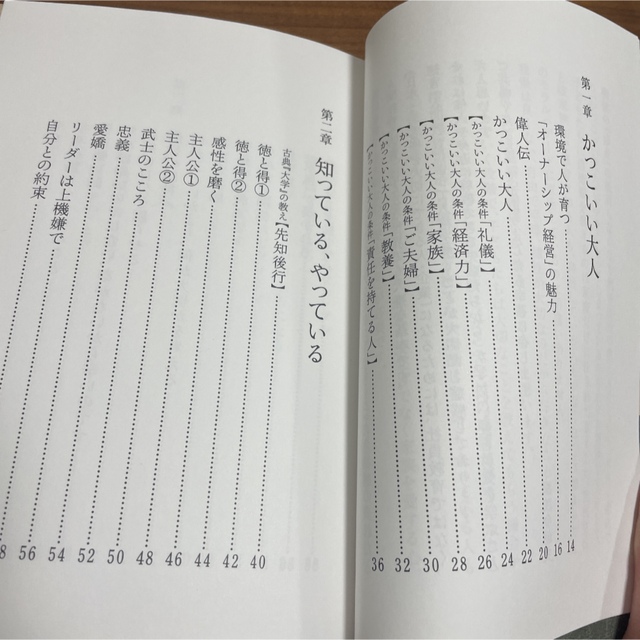 第一章 かっこいい大人
環境で人が育つ 14
「オーナーシップ経営」の魅力 16
偉人伝 20
かっこいい大人 22
【かっこいい大人の条件「礼儀」】 24
【かっこいい大人の条件「経済力」】 26
【かっこいい大人の条件「家族」】 28
【かっこいい大人の条件「ご夫婦」】 30
【かっこいい大人の条件「教養」】 32
【かっこいい大人の条件「責任を持てる人」】 36
第二章 知っている、やっている
古典「大学」の教え【先知後行】
徳と得① 40
徳と得② 42
感性を磨く 44
主人公① 46
主人公② 48
武士のこころ 50
忠義 52
愛嬌 54
リーダーは上機嫌で 56
自分との約束 8